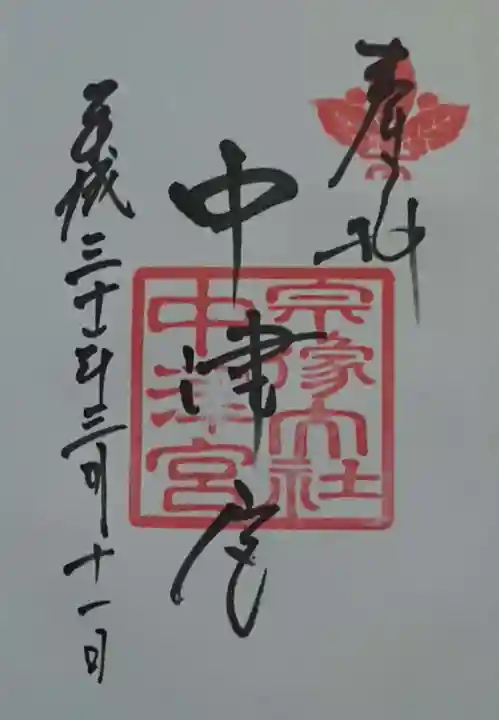 奉拝
中津宮
宗像大社
中津宮
平成三十一年三月十一日